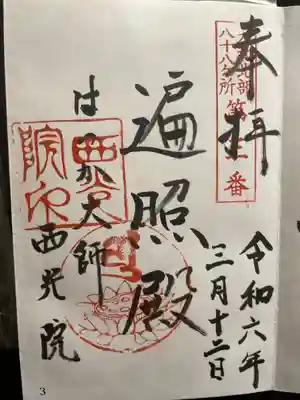 奉拝
八十八ヶ所
番
令和六年
三月十二日
遍照殿
はつか大師
西光院
3